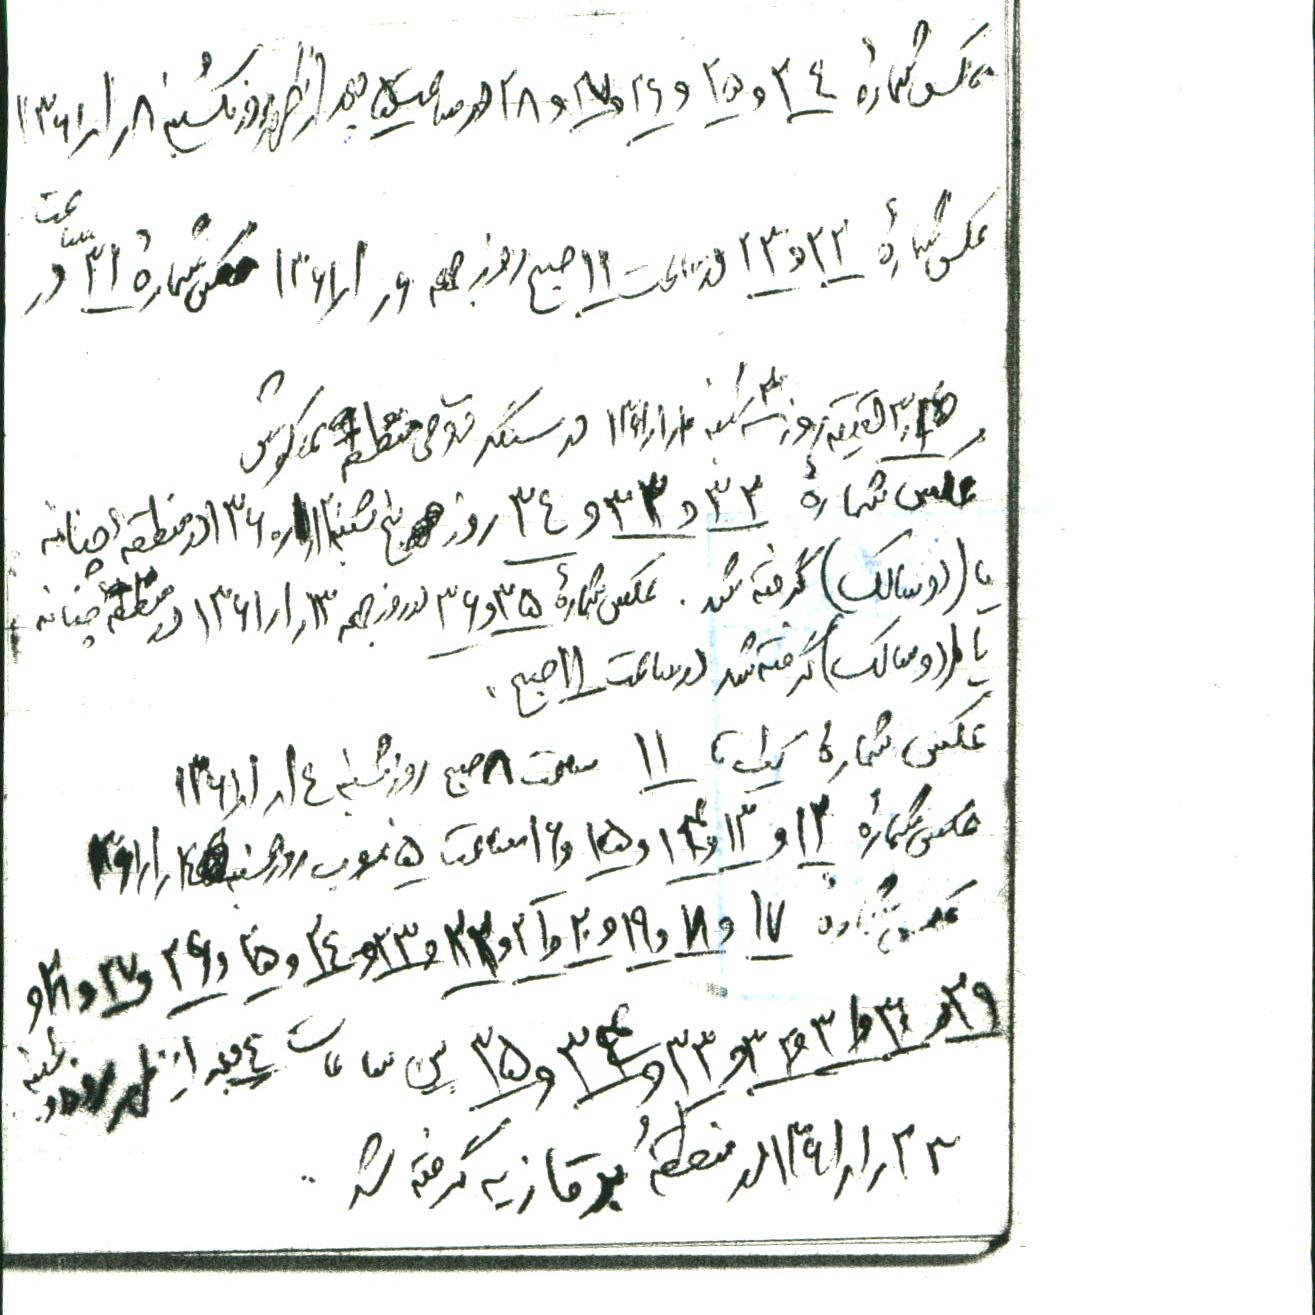 عکس شمارهٔ ۲۴ و ۲۵ و ۲۶ و ۲۷ و ۲۸ در ساعت ۵ بعد از ظهر روز یکشنبه ۸ر۱ر۱۳۶۱
عکس شمارهٔ ۲۲ و ۲۳ در ساعت ۱۱ صبح روز جمعه ۶ر۱ر۱۳۶۱ عکس شمارهٔ ۳۱ در ساعت
دقیقه روز سه‌شنبه ۱۰ر۱ر۱۳۶۱ در سنگر منطقه
عکس شمارهٔ ۳۲ و ۳۳ و ۳۴ روز پنج شنبه ۱۳۶۱ در منطقهٔ چنانه
یا (دوسالک) گرفته شد. عکس شمارهٔ ۳۵ و ۳۶ در روز جمعه ۱۳ر۱ر۱۳۶۱ در منطقهٔ چنانه
یا (دوسالک) گرفته شد در ساعت ۱۱ صبح.
عکس شمارهٔ یک تا ۱۱ ساعت ۸ صبح روز شنبه ۱۴ر۱ر۱۳۶۱
عکس شمارهٔ ۱۲ و ۱۳ و ۱۴ و ۱۵ و ۱۶ ساعت ۵ غروب روز شنبه ۱۴ر۱ر۱۳۶۱
عکس شمارهٔ ۱۷ و ۱۸ و ۱۹ و ۲۰ و ۲۱ و ۲۲ و ۲۳ و ۲۴ و ۲۵ و ۲۶ و ۲۷ و ۲۸ و
۲۹ و ۳۰ و ۳۱ و ۳۲ و ۳۳ و ۳۴ و ۳۵ بین ساعت ۴ بعد از ظهر روز دوشنبه
۲۳ر۱ر۱۳۶۱ در منطقهٔ برقازیه گرفته شد.